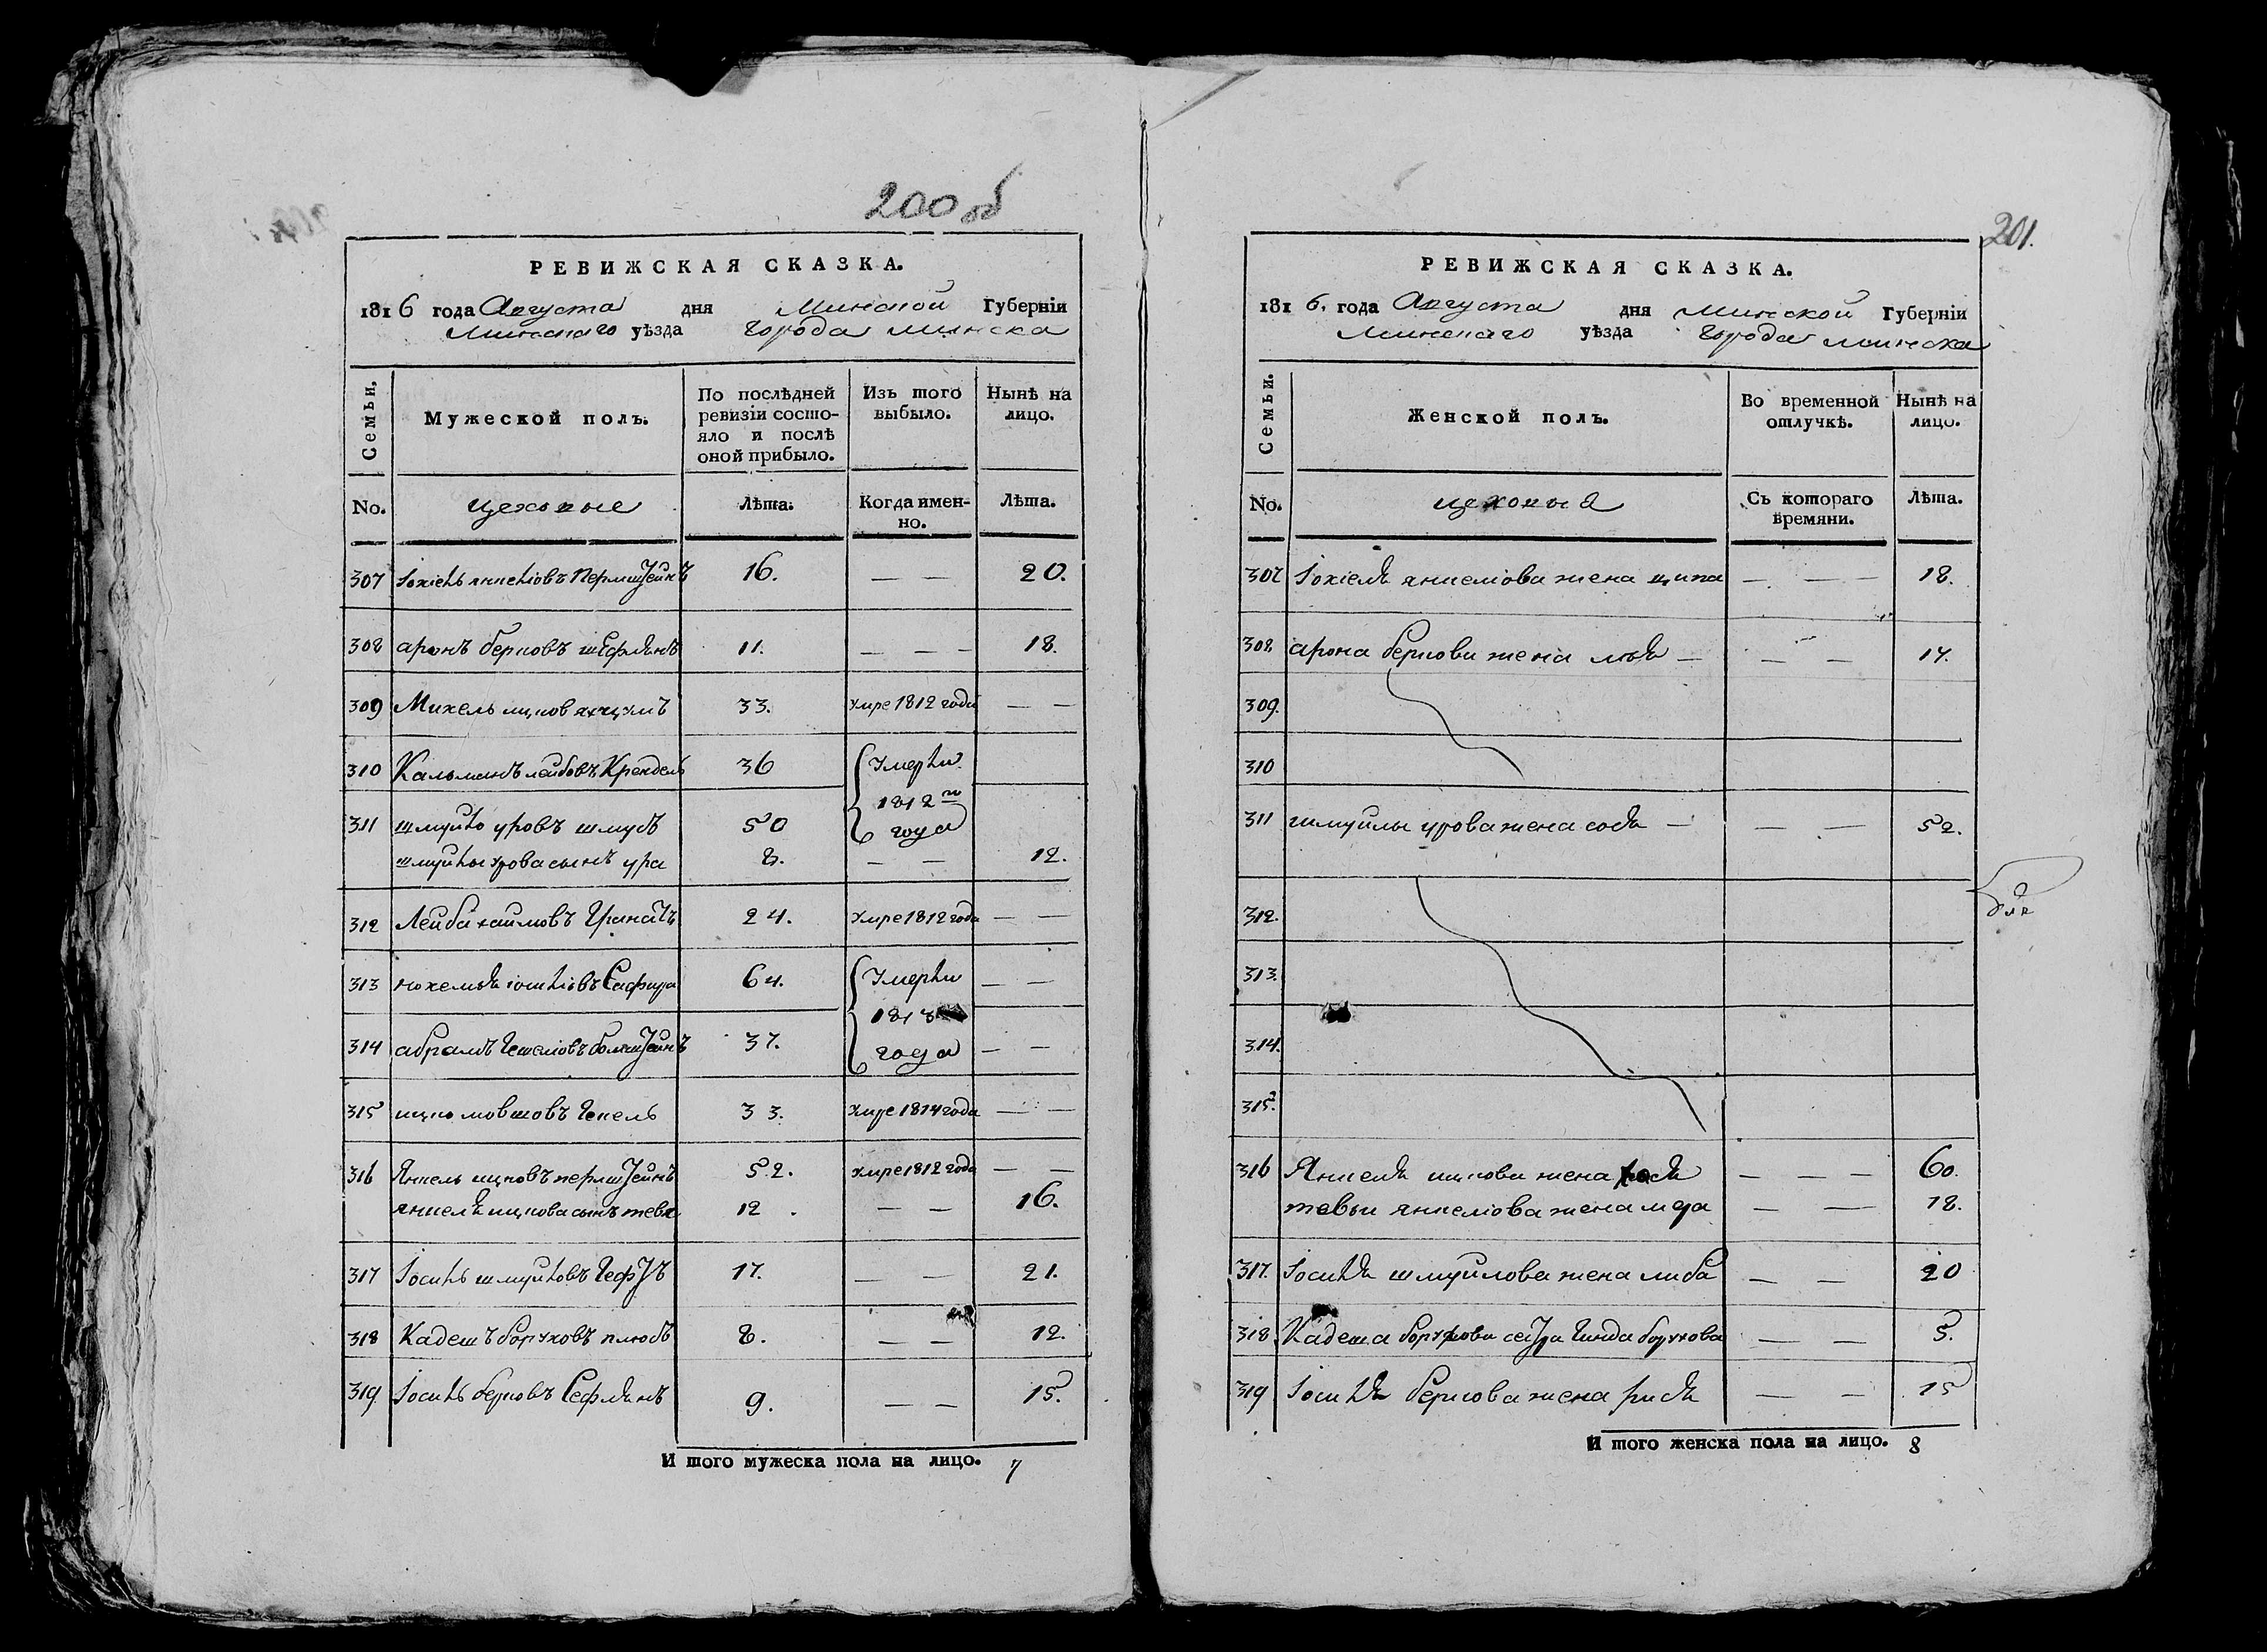 200 об
РЕВИЖСКАЯ СКАЗКА.
1816 года Августа дня Минской Губерніи
Минскаго уѣзда города минска
Семьи. Мужеской полъ. По послѣдней ревизіи состояло и послѣ оной прибыло. Изъ того выбыло. Нынѣ на лицо.
No. цеховые Лѣта. Когда именно. Лѣта.
307 Іохель янкеліовъ Перлштейнъ 16. — — 20.
308 аронъ берковъ 11. — — — 18.
309 Михель ицков 33. умре 1812 года — —
310 Кальманъ лейбовъ Крендель 36 Умерли
1812го
311 шмуйло уровъ 50 года
шмуйлы урова сынъ ура 8. — — 12.
312 Лейба хаимовъ Гранатъ 24. умре 1812 года — —
313 64. Умерли — —
1813
314 абрамъ 37. года — —
315 ицко мовшовъ 33. умре 1814 года — —
316 Янкель ицковъ перлштейнъ 52. умре 1812 года — —
янкеля ицкова сынъ тевя 12. — — 16.
317 Іосиль шмуйловъ 17. — — 21.
318 Кадешъ боруховъ 8. — — 12.
319 Іосиль берковъ 9. — — 15.
И того мужеска пола на лицо. 7
201.
РЕВИЖСКАЯ СКАЗКА.
1816. года Августа дня Минской Губерніи
Минскаго уѣзда города минска
Семьи. Женской полъ. Во временной отлучкѣ. Нынѣ на лицо.
No. цеховыя Съ котораго времяни. Лѣта.
307 Іохеля янкеліова жена ципа — — — 18.
308 арона беркова жена — — — 17.
309.
310
311 шмуйлы урова жена сося — — — 52.
312.
313.
314.
315.
316 Янкеля ицкова жена — — — 60.
тевьи янкеліова жена — — 18.
317. Іосиля шмуйлова жена либа — — 20
318 Кадеша борухова сестра гинда борухова — — 5.
319 Іосиля беркова жена — — 15
И того женска пола на лицо. 8